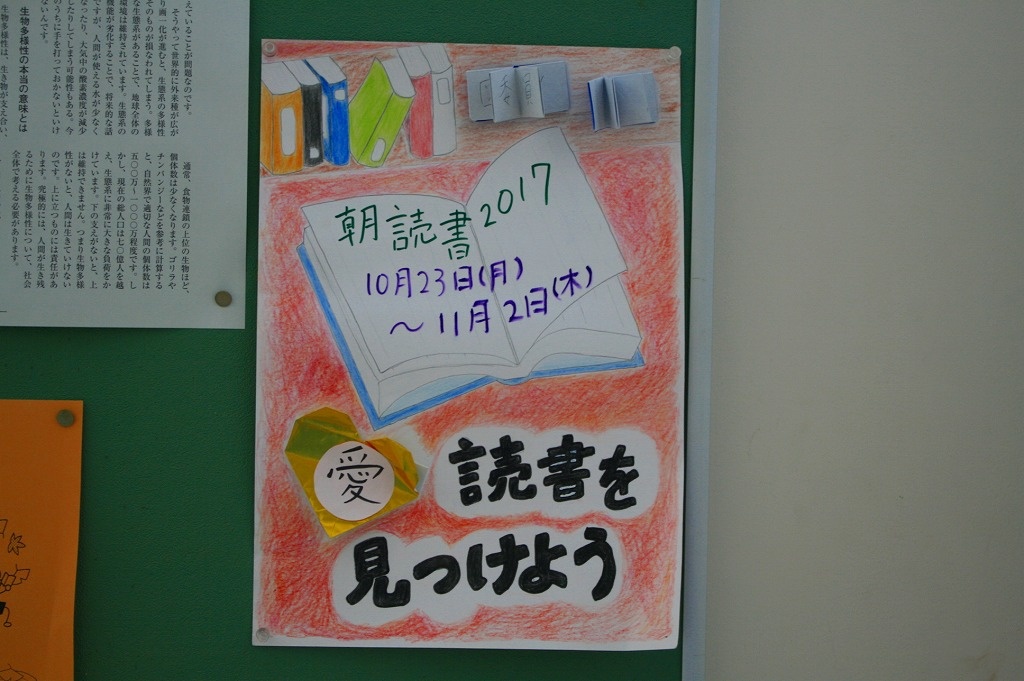 朝読書2017
10月23日(月)
～11月2日(木)
愛
読書を
見つけよう
えていることが問題なのです。
そうやって世界的に外来種が広が
り画一化が進むと、生態系の多様性
そのものが損なわれてしまう。多様
な生態系があることで、地球全体の
環境は維持されています。生態系の
機能が劣化することで、将来的な話
ですが、人間が使える水が少なく
なったり、大気中の酸素濃度が減少
したりしてしまう可能性もある。今
のうちに手を打っておかないといけ
ないんです。
生物多様性の本当の意味とは
生物多様性は、生き物が支え合い、
通常、食物連鎖の上位の生物ほど、
個体数は少なくなります。ゴリラや
チンパンジーなどを参考に計算する
と、自然界で適切な人間の個体数は
五〇〇万～一〇〇〇万程度です。し
かし、現在の総人口は七〇億人を越
え、生態系に非常に大きな負荷をか
けています。下の支えがないと、上
は維持できません。つまり生物多様
性がないと、人間は生きていけない
のです。上に立つものには責任があ
ります。究極的には、人間が生き残
るために生物多様性について、社会
全体で考える必要があります。